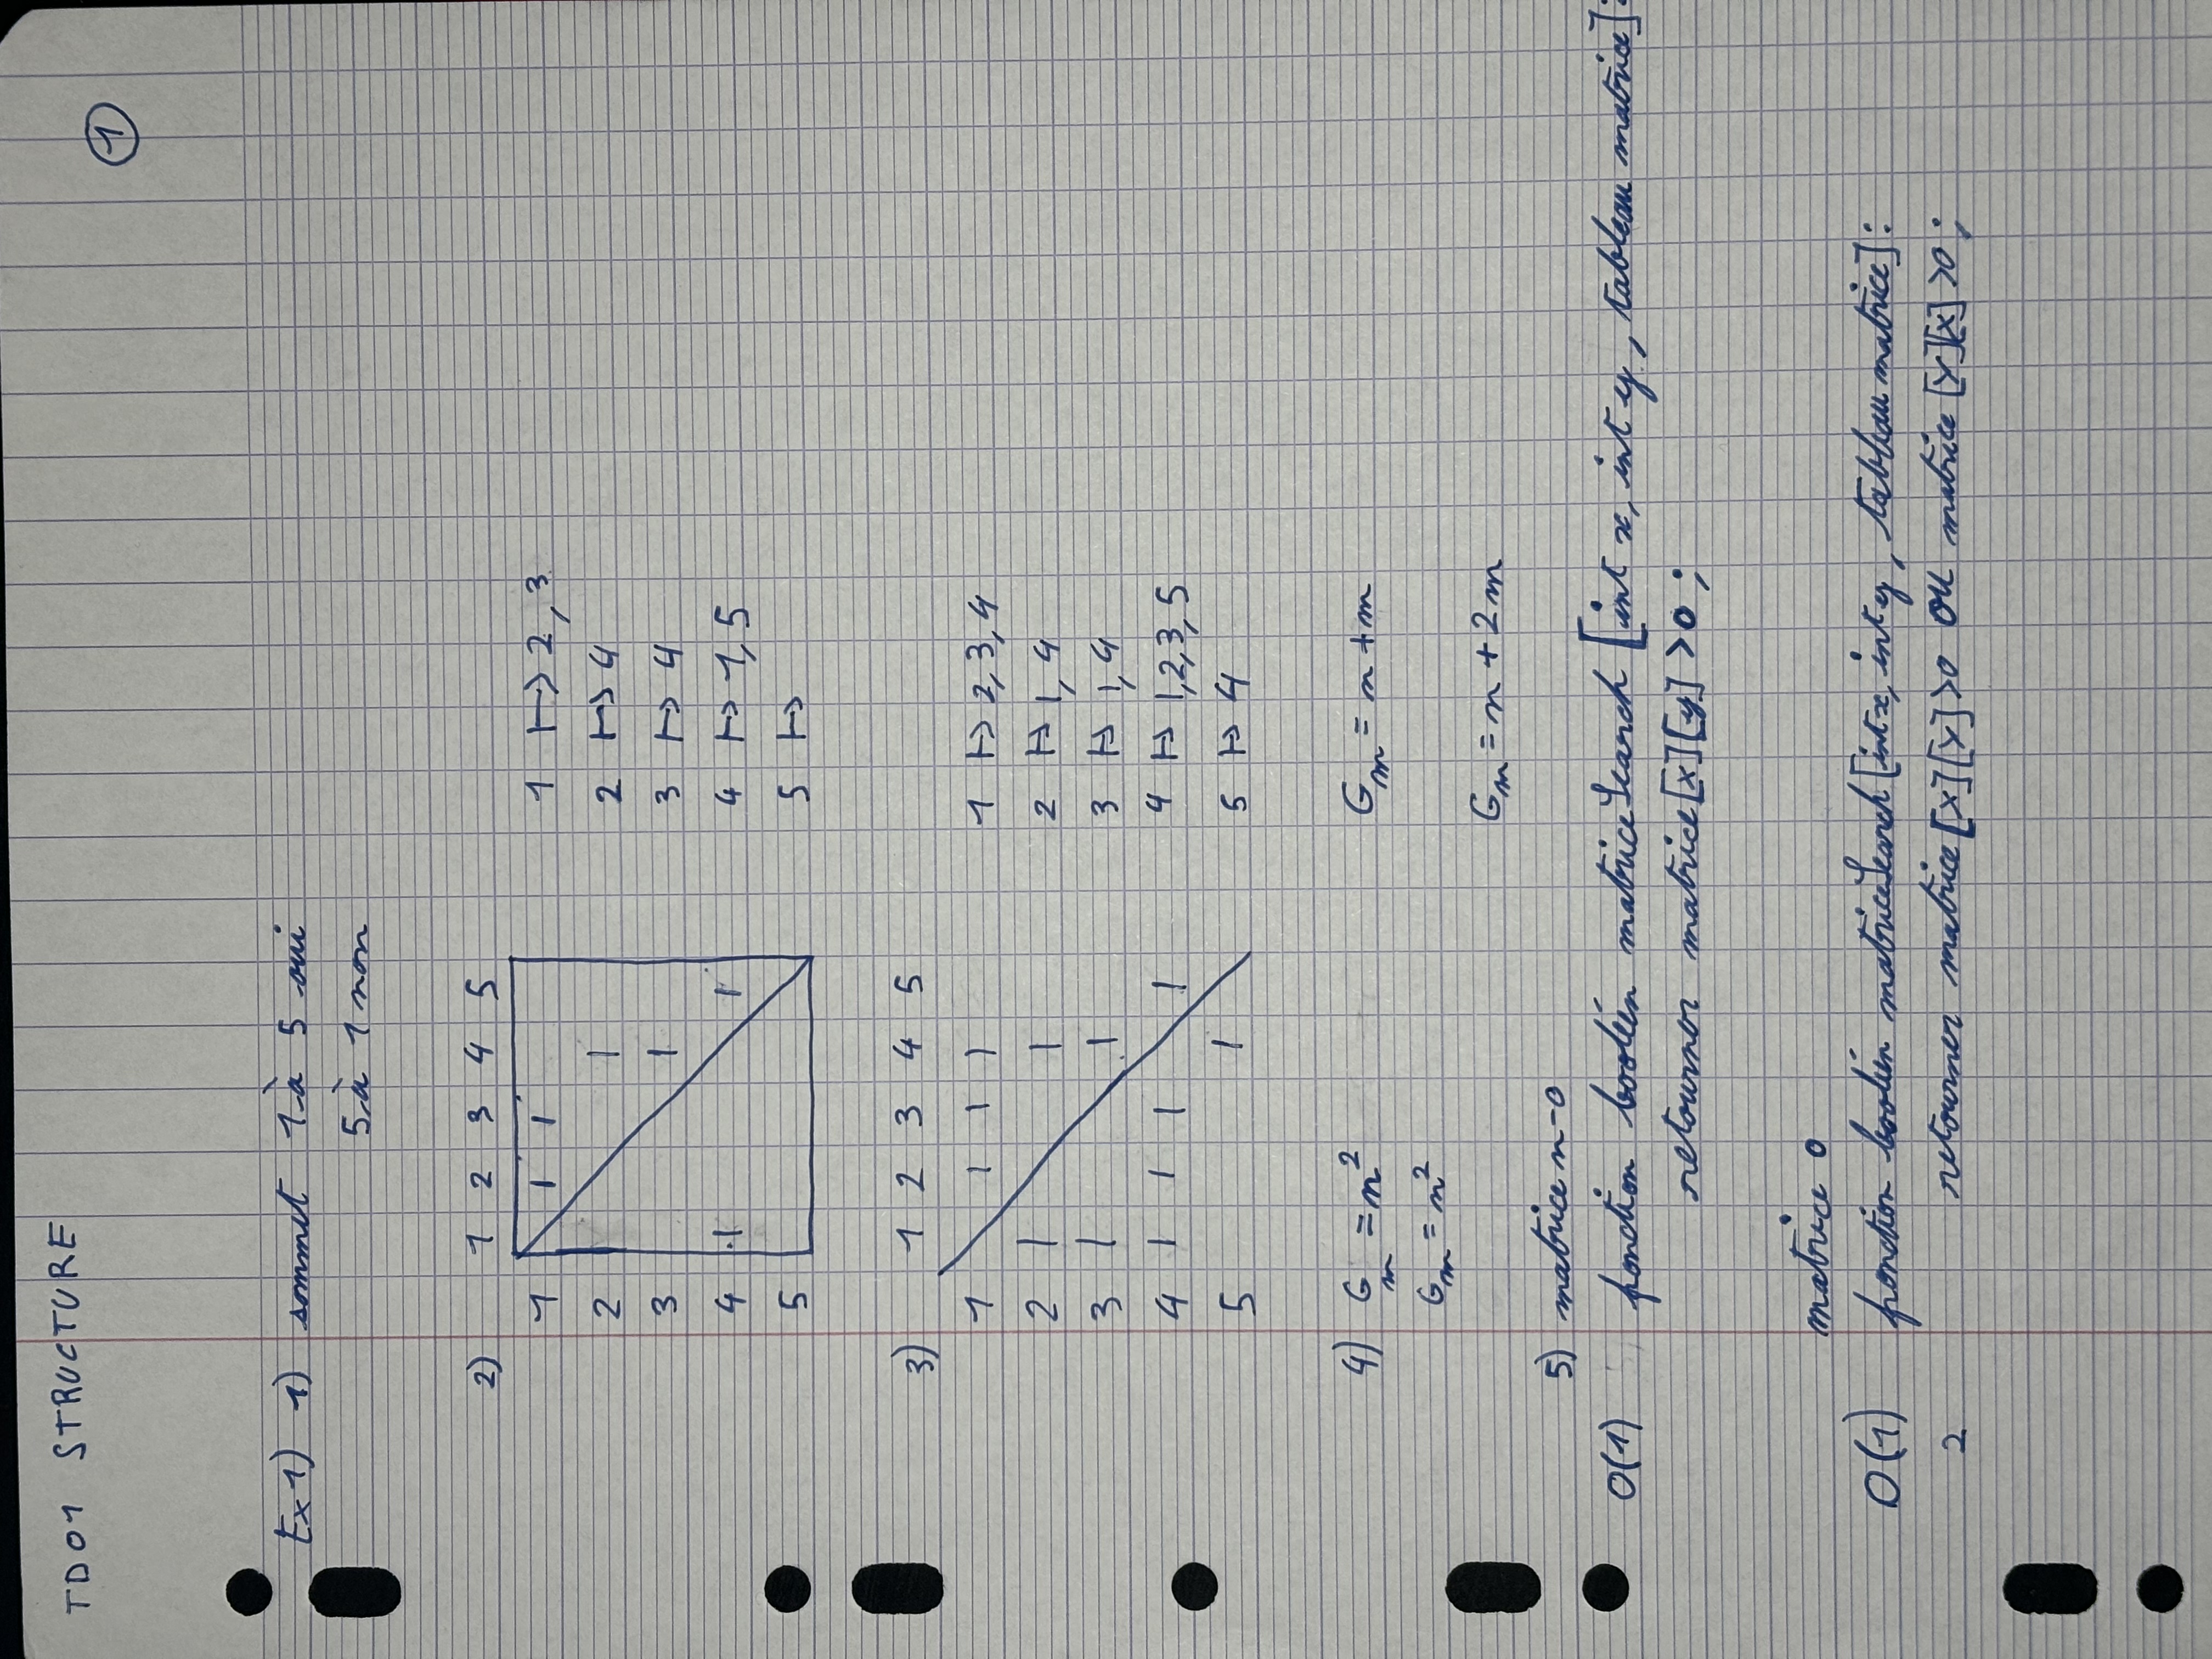 TD01 STRUCTURE
1
Ex1) 1) sommet 1 à 5 oui
5 à 1 non
2) 1 2 3 4 5
1 1 1
2 1
3 1
4 1 1
5
1 ↦ 2, 3
2 ↦ 4
3 ↦ 4
4 ↦ 1, 5
5 ↦
3) 1 2 3 4 5
1 1 1 1
2 1 1
3 1 1
4 1 1 1 1
5 1
1 ↦ 2, 3, 4
2 ↦ 1, 4
3 ↦ 1, 4
4 ↦ 1, 2, 3, 5
5 ↦ 4
4) Gm = n² Gm = n + m
Gm = n²
Gm = n + 2m
5) matrice n-o
O(1) fonction booléén matriceSearch [int x, int y, tableau matrice]:
retourner matrice[x][y] >0 ;
matrice o
O(1) fonction booléén matriceSearch [int x, int y, tableau matrice]:
2 retourner matrice [x][y] >0 OU matrice [y][x] >0 ;